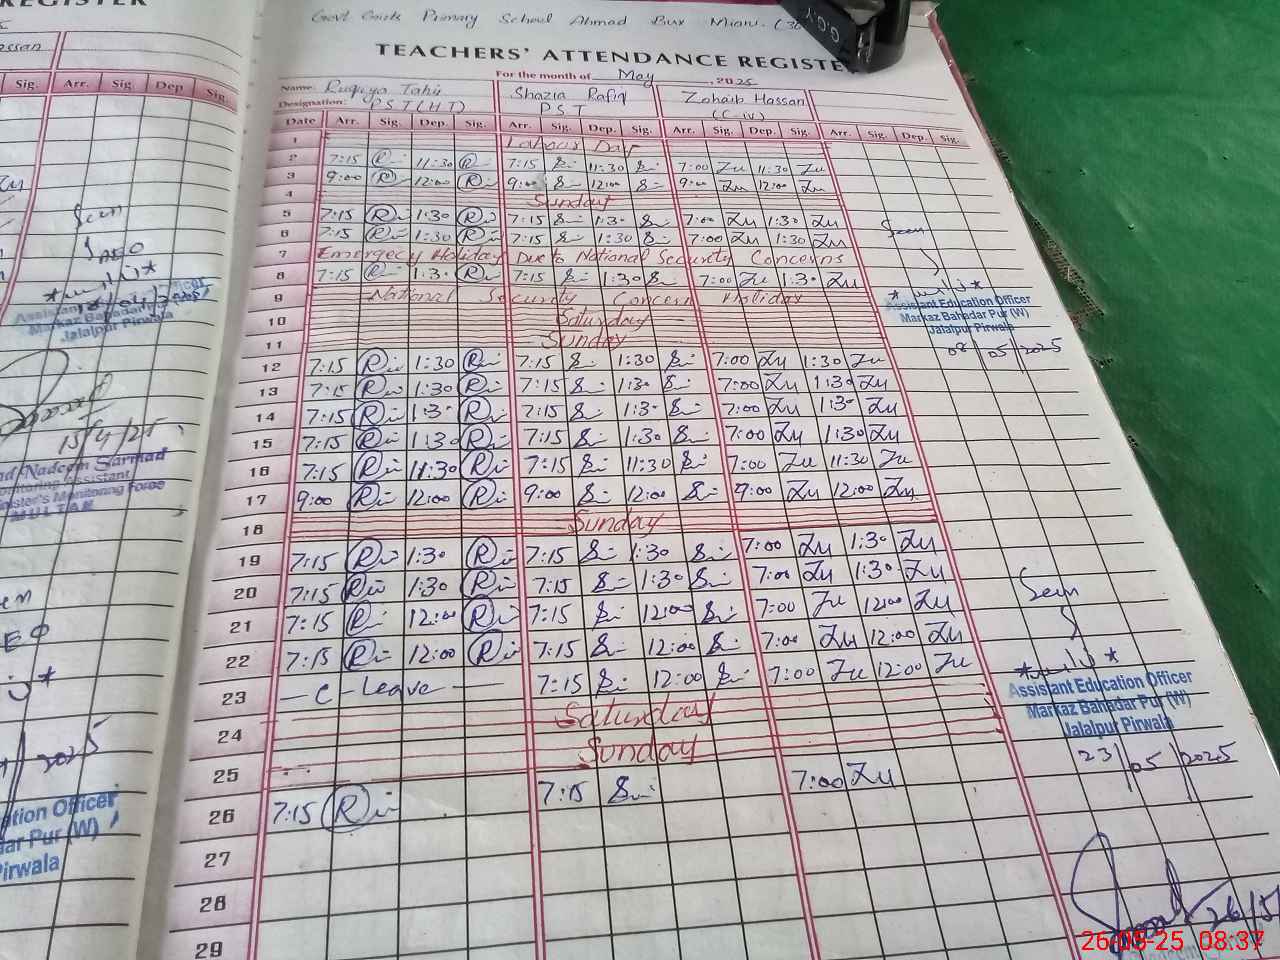 REGISTER
Govt. Girls Primary School Ahmad Bux Mian. (36
TEACHERS' ATTENDANCE REGISTER
For the month of May , 2025
Name: Ruqaya Tahir Shazia Rafiq Zohaib Hassan
Designation: PST(HT) PST (C-IV)
Date Arr. Sig. Dep. Sig. Arr. Sig. Dep. Sig. Arr. Sig. Dep. Sig. Arr. Sig. Dep. Sig.
1 Labour Day
2 7:15 11:30 7:15 11:30 7:00 Zu 11:30 Zu
3 9:00 12:00 9:00 12:00 9:00 Zu 12:00 Zu
4 Sunday
5 7:15 1:30 7:15 1:30 7:00 Zu 1:30 Zu
6 7:15 1:30 7:15 1:30 7:00 Zu 1:30 Zu
7 Emergecy Holiday Due to National Security Concerns
8 7:15 1:30 7:15 1:30 7:00 Zu 1:30 Zu
9 National Security Concern Holiday
10 Saturday
11 Sunday
12 7:15 1:30 7:15 1:30 7:00 Zu 1:30 Zu
13 7:15 1:30 7:15 1:30 7:00 Zu 1:30 Zu
14 7:15 1:30 7:15 1:30 7:00 Zu 1:30 Zu
15 7:15 1:30 7:15 1:30 7:00 Zu 1:30 Zu
16 7:15 11:30 7:15 11:30 7:00 Zu 11:30 Zu
17 9:00 12:00 9:00 12:00 9:00 Zu 12:00 Zu
18 Sunday
19 7:15 1:30 7:15 1:30 7:00 Zu 1:30 Zu
20 7:15 1:30 7:15 1:30 7:00 Zu 1:30 Zu
21 7:15 12:00 7:15 12:00 7:00 Zu 12:00 Zu
22 7:15 12:00 7:15 12:00 7:00 Zu 12:00 Zu
23 C-Leave 7:15 12:00 7:00 Zu 12:00 Zu
24 Saturday
25 Sunday
26 7:15 7:15 7:00 Zu
27
28
29
Seen
Assistant Education Officer
Markaz Bahadar Pur (W)
Jalalpur Pirwala
08/05/2025
Seen
Assistant Education Officer
Markaz Bahadar Pur (W)
Jalalpur Pirwala
23/05/2025
26/5
26-05-25 08:37
Sig. Arr. Sig Dep Sig.
Seen
AEO
Markaz Bahadar Pur (W)
Jalalpur Pirwala
15/4/25
ad Nadeem Sarmad
onitoring Assistant
inister's Monitoring Force
MULTAN
2025
ation Officer
dar Pur (W)
Pirwala